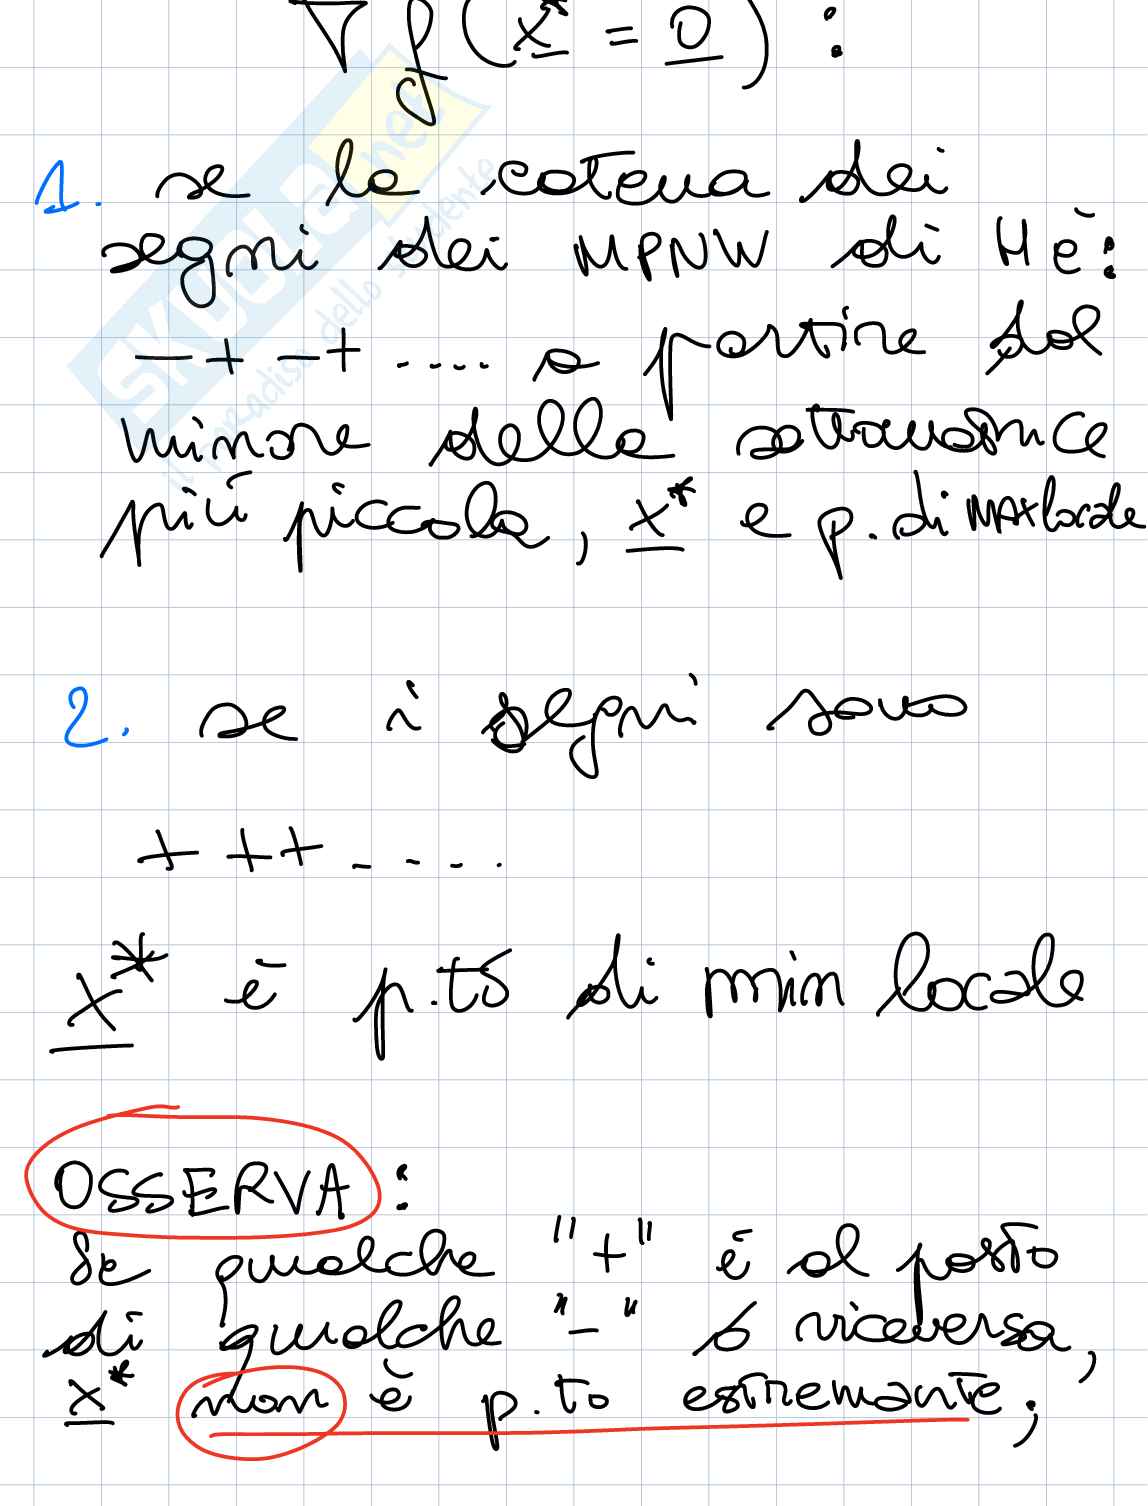 ∇f(x* = 0) :
1. se la catena dei
segni dei MPNW di H è:
- + - + .... a partire dal
minore della sottomatrice
più piccola, x* e p. di MAX locale
2. se i segni sono
+ + + - - - .
x* è p.to di min locale
OSSERVA :
Se qualche "+" è al posto
di qualche "-" o viceversa,
x* non è p.to estremante;
SKUOLA.net
il paradiso dello studente